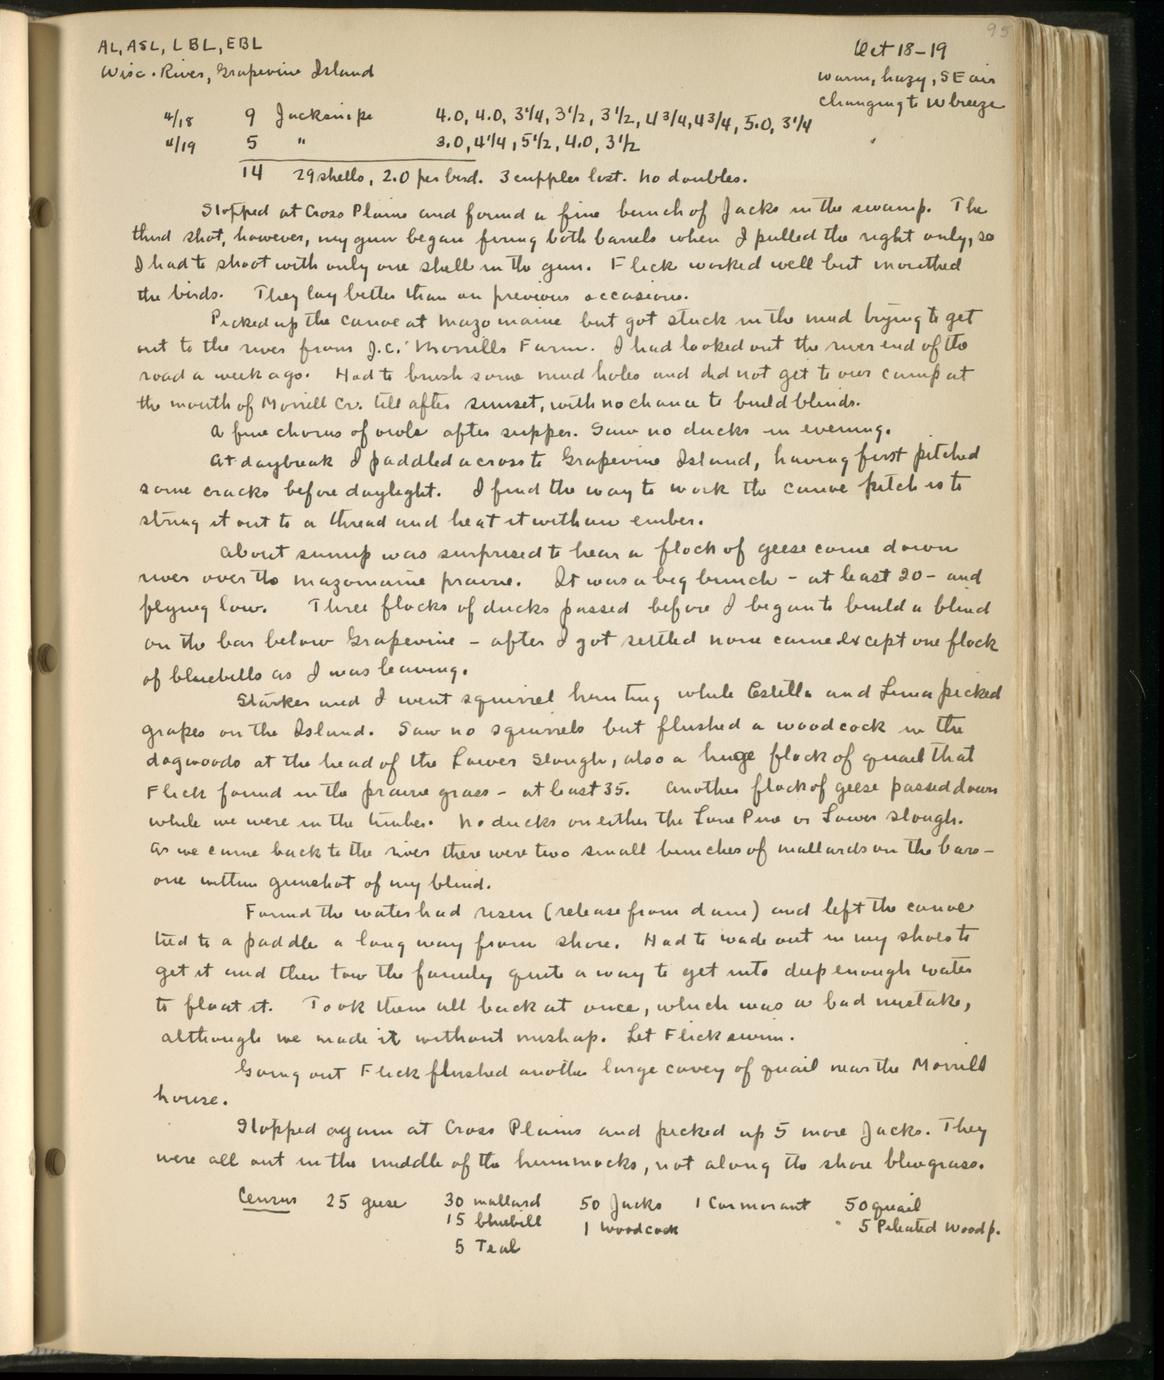 95
AL, ASL, LBL, EBL
Oct 18-19
Wisc. River, Grapevine Island
warm, hazy, SE air
changing to W breeze
4/18 9 Jacksnipe 4.0, 4.0, 3 1/4, 3 1/2, 3 1/2, 4 3/4, 4 3/4, 5.0, 3 1/4
4/19 5 " 3.0, 4 1/4, 5 1/2, 4.0, 3 1/2
14 29 shells, 2.0 per bird. 3 cripples lost. No doubles.
Stopped at Cross Plains and found a fine bunch of Jacks in the swamp. The
third shot, however, my gun began firing both barrels when I pulled the right only, so
I had to shoot with only one shell in the gun. Flick worked well but mouthed
the birds. They lay better than on previous occasions.
Picked up the canoe at Mazomanie but got stuck in the mud trying to get
out to the river from J.C. Morrills Farm. I had looked out the river end of the
road a week ago. Had to brush some mud holes and did not get to our camp at
the mouth of Morrill Cr. till after sunset, with no chance to build blinds.
A fine chorus of owls after supper. Saw no ducks in evening.
At daybreak I paddled across to Grapevine Island, having first pitched
some cracks before daylight. I find the way to work the canoe pitch is to
string it out to a thread and heat it with an ember.
About sunup was surprised to hear a flock of geese come down
river over the Mazomanie prairie. It was a big bunch - at least 20 - and
flying low. Three flocks of ducks passed before I began to build a blind
on the bar below Grapevine - after I got settled none came except one flock
of bluebills as I was leaving.
Starker and I went squirrel hunting while Estella and Luna picked
grapes on the Island. Saw no squirrels but flushed a woodcock in the
dogwoods at the head of the Lower Slough, also a huge flock of quail that
Flick found in the prairie grass - at least 35. Another flock of geese passed down
while we were in the timber. No ducks on either the Lone Pine or Lower slough.
As we came back to the river there were two small bunches of mallards on the bars -
one within gunshot of my blind.
Found the water had risen (release from dam) and left the canoe
tied to a paddle a long way from shore. Had to wade out in my shoes to
get it and then tow the family quite a way to get into deep enough water
to float it. Took them all back at once, which was a bad mistake,
although we made it without mishap. Let Flick swim.
Going out Flick flushed another large covey of quail near the Morrill
house.
Stopped again at Cross Plains and picked up 5 more Jacks. They
were all out in the middle of the hummocks, not along the shore bluegrass.
Census 25 geese 30 mallard 50 Jacks 1 Cormorant 50 quail
15 bluebill 1 Woodcock 5 Pileated Woodp.
5 Teal